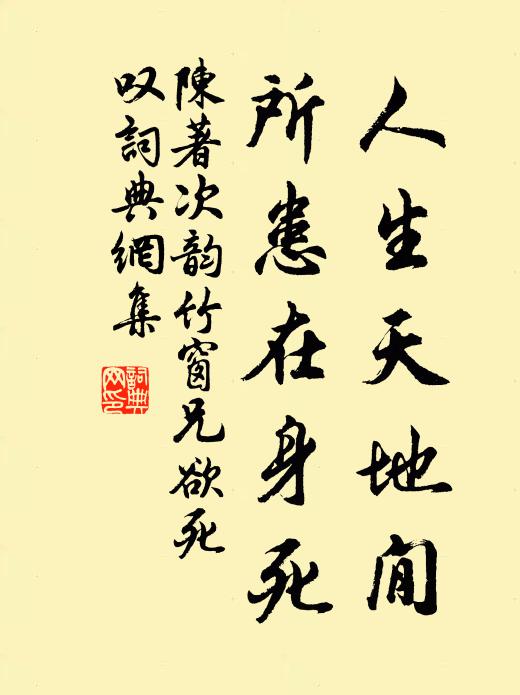 人生天地間
所患在身死
陳著次韵竹窗兄欲死
叹詞典網集
詞典
网印